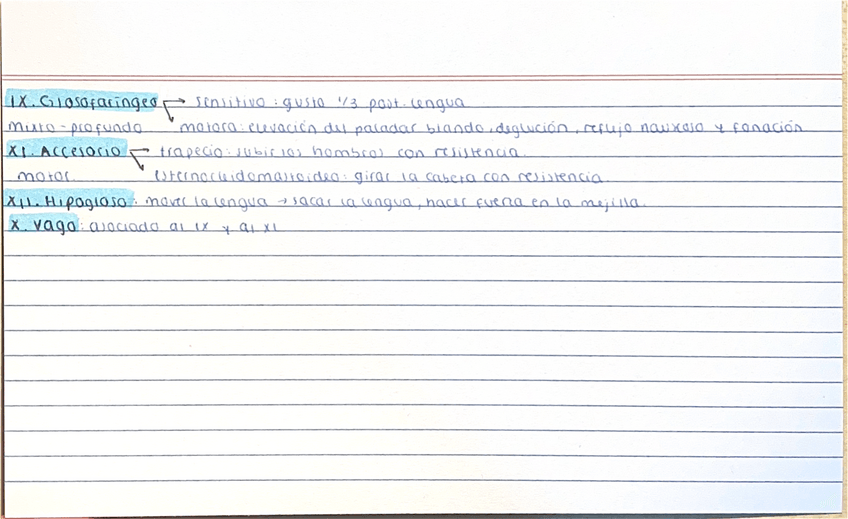 IX. Glosofaríngeo → sensitivo: gusto 1/3 post. lengua
mixto-profundo → motora: elevación del paladar blando, deglución, reflujo nauxoso y fonación
XI. Accesorio → trapecio: subir los hombros con resistencia.
motor. → esternocleidomastoideo: girar la cabeza con resistencia.
XII. Hipogloso: mover la lengua → sacar la lengua, hacer fuerza en la mejilla.
X. Vago: asociado al IX y al XI